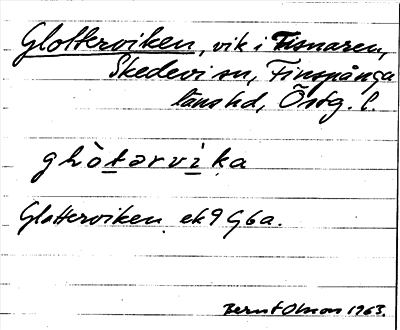 Glotterviken, vik i Tisnaren,
Skedevi sn, Finspånga
läns hd, Östg. l.
ghòtərvika
Glotterviken ek 9 G 6 a.
Bernt Olsson 1963.